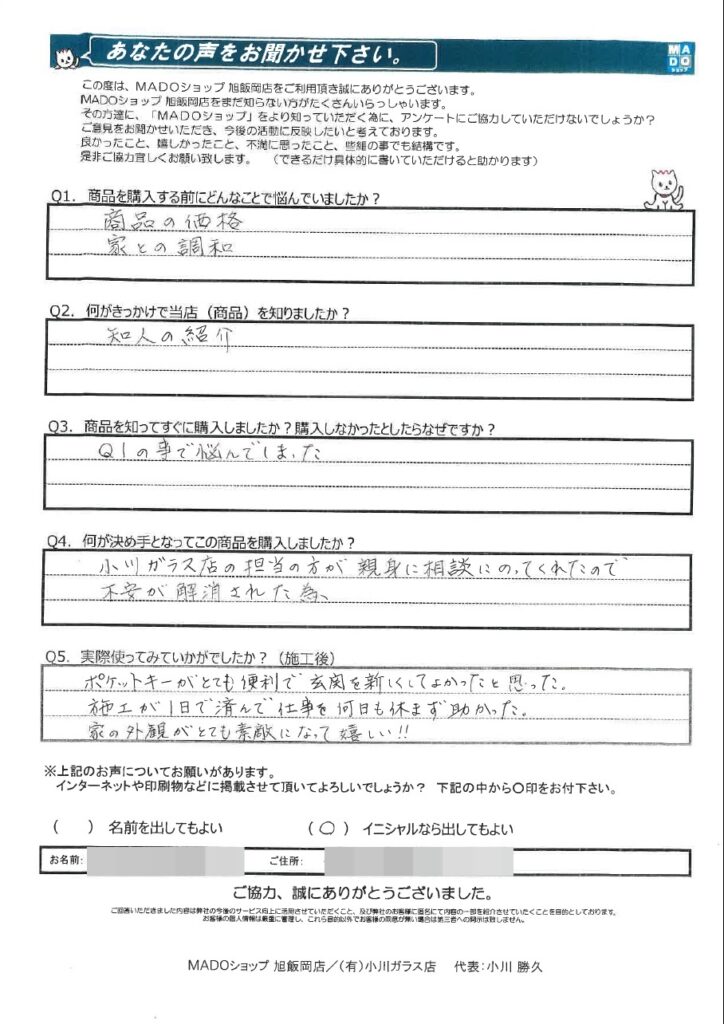 あなたの声をお聞かせ下さい。
MADO
ショップ
この度は、MADOショップ 旭飯岡店をご利用頂き誠にありがとうございます。
MADOショップ 旭飯岡店をまだ知らない方がたくさんいらっしゃいます。
その方達に、「MADOショップ」をより知っていただく為に、アンケートにご協力していただけないでしょうか？
ご意見をお聞かせいただき、今後の活動に反映したいと考えております。
良かったこと、嬉しかったこと、不満に思ったこと、些細の事でも結構です。
是非ご協力宜しくお願い致します。 （できるだけ具体的に書いていただけると助かります）
Q1. 商品を購入する前にどんなことで悩んでいましたか？
商品の価格
家との調和
Q2. 何がきっかけで当店（商品）を知りましたか？
知人の紹介
Q3. 商品を知ってすぐに購入しましたか？購入しなかったとしたらなぜですか？
Q1の事で悩んでしまった
Q4. 何が決め手となってこの商品を購入しましたか？
小川ガラス店の担当の方が親身に相談にのってくれたので
不安が解消された為、
Q5. 実際使ってみていかがでしたか？（施工後）
ポケットキーがとても便利で玄関を新しくしてよかったと思った。
施工が1日で済んで仕事を何日も休まず助かった。
家の外観がとても素敵になって嬉しい!!
※上記のお声についてお願いがあります。
インターネットや印刷物などに掲載させて頂いてよろしいでしょうか？ 下記の中から〇印をお付下さい。
（ ）名前を出してもよい （〇）イニシャルなら出してもよい
お名前: ご住所:
ご協力、誠にありがとうございました。
ご回答いただきました内容は弊社の今後のサービス向上に活用させていただくこと、及び弊社のお客様に匿名にて内容の一部を紹介させていくことを目的としております。
お客様の個人情報は厳重に管理し、これら目的以外でお客様の同意が無い場合は第三者への開示は致しません。
MADOショップ 旭飯岡店／(有)小川ガラス店 代表:小川 勝久